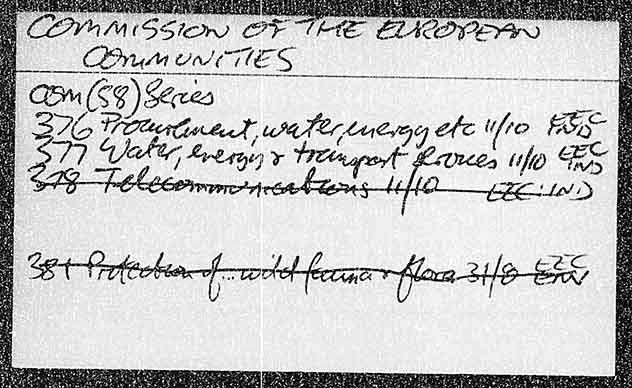 COMMISSION OF THE EUROPEAN
COMMUNITIES
COM(88) Series
376 Procurement, water, energy etc 11/10 EEC IND
377 Water, energy & transport 11/10 EEC IND
378 Telecommunications 11/10 EEC IND
381 Protection of... wild fauna & flora 31/8 EEC ENV